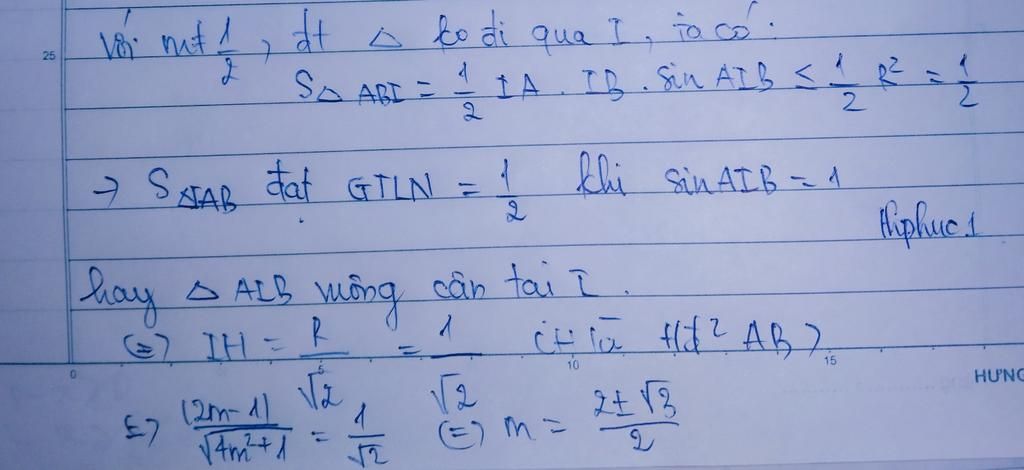 Với m≠ 1/2, đt △ ko đi qua I, ta có:
25
S△ABI = 1/2 IA . IB . sin AIB ≤ 1/2 R² = 1/2
→ S△IAB đạt GTLN = 1/2 khi sin AIB = 1
thiphuc1
hay △ AIB vuông cân tại I.
(=) IH = R/√2 = 1/√2 (H là tđ² AB)
0 5 10 15
HƯNG
(=) (2m-1)/√4m²+1 = 1/√2 (=) m = 2±√3/2